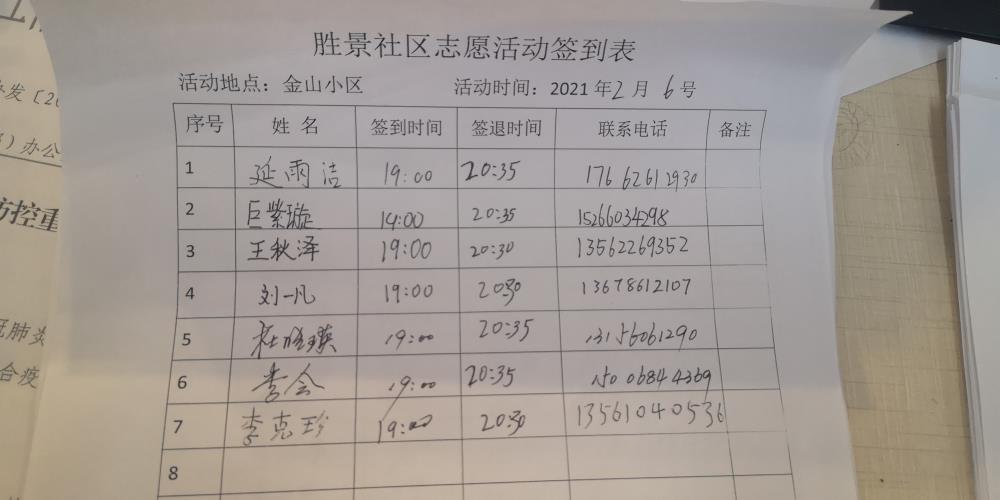 胜景社区志愿活动签到表
活动地点：金山小区 活动时间：2021年2月6号
序号 姓名 签到时间 签退时间 联系电话 备注
1 延雨洁 19:00 20:35 17662612930
2 巨紫璇 19:00 20:35 15266034298
3 王秋泽 19:00 20:30 13562269352
4 刘一凡 19:00 20:30 13678612107
5 19:00 20:35 13156061290
6 李会 19:00 20:35 15006844369
7 李克珍 19:00 20:30 13561040536
8
发〔20
）办公
防控重
冠肺炎
合疫